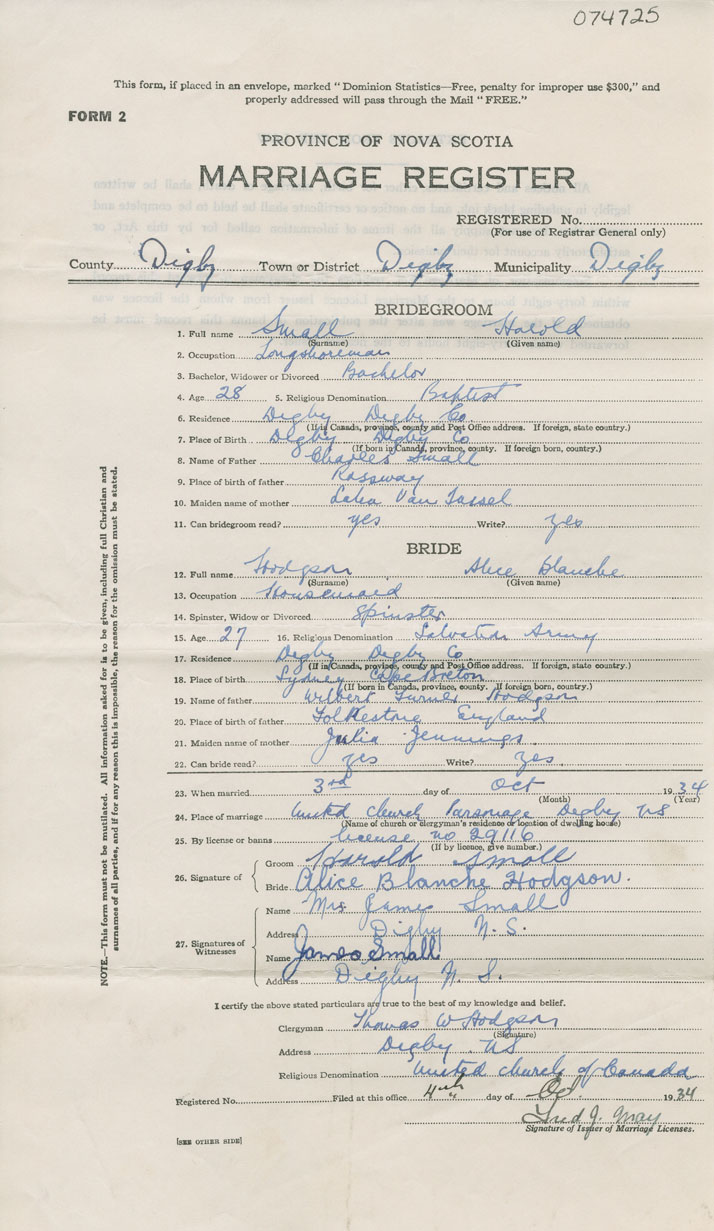 074725
This form, if placed in an envelope, marked " Dominion Statistics—Free, penalty for improper use $300," and
properly addressed will pass through the Mail "FREE."
FORM 2
PROVINCE OF NOVA SCOTIA
MARRIAGE REGISTER
REGISTERED No.
(For use of Registrar General only)
County Digby Town or District Digby Municipality Digby
BRIDEGROOM
1. Full name Small Harold
(Surname) (Given name)
2. Occupation Longshoreman
3. Bachelor, Widower or Divorced Bachelor
4. Age 28 5. Religious Denomination Baptist
6. Residence Digby Digby Co.
(If in Canada, province, county and Post Office address. If foreign, state country.)
7. Place of Birth Digby Digby Co
(If born in Canada, province, county. If foreign born, country.)
8. Name of Father Charles Small
9. Place of birth of father Rossway
10. Maiden name of mother Van Tassel
11. Can bridegroom read? yes Write? yes
BRIDE
12. Full name Hodgson Alice Blanche
(Surname) (Given name)
13. Occupation Housemaid
14. Spinster, Widow or Divorced Spinster
15. Age 27 16. Religious Denomination Salvation Army
17. Residence Digby Digby Co
(If in Canada, province, county and Post Office address. If foreign, state country.)
18. Place of birth Sydney Cape Breton
(If born in Canada, province, county. If foreign born, country.)
19. Name of father Wilbert Turner Hodgson
20. Place of birth of father Folkestone England
21. Maiden name of mother Julia Jennings
22. Can bride read? yes Write? yes
23. When married 3rd day of Oct 1934
(Month) (Year)
24. Place of marriage United Church Parsonage Digby NS
(Name of church or clergyman's residence or location of dwelling house)
25. By license or banns license no 29116
(If by licence, give number.)
26. Signature of
Groom Harold Small
Bride Alice Blanche Hodgson.
27. Signatures of Witnesses
Name Mrs James Small
Address Digby N. S.
Name James Small
Address Digby N. S.
I certify the above stated particulars are true to the best of my knowledge and belief.
Clergyman Thomas W Hodgson
(Signature)
Address Digby NS
Religious Denomination United Church of Canada
Registered No. Filed at this office 4th day of Oct. 1934
Fred J. May
Signature of Issuer of Marriage Licenses.
[SEE OTHER SIDE]
NOTE.—This form must not be mutilated. All information asked for is to be given, including full Christian and
surnames of all parties, and if for any reason this is impossible, the reason for the omission must be stated.